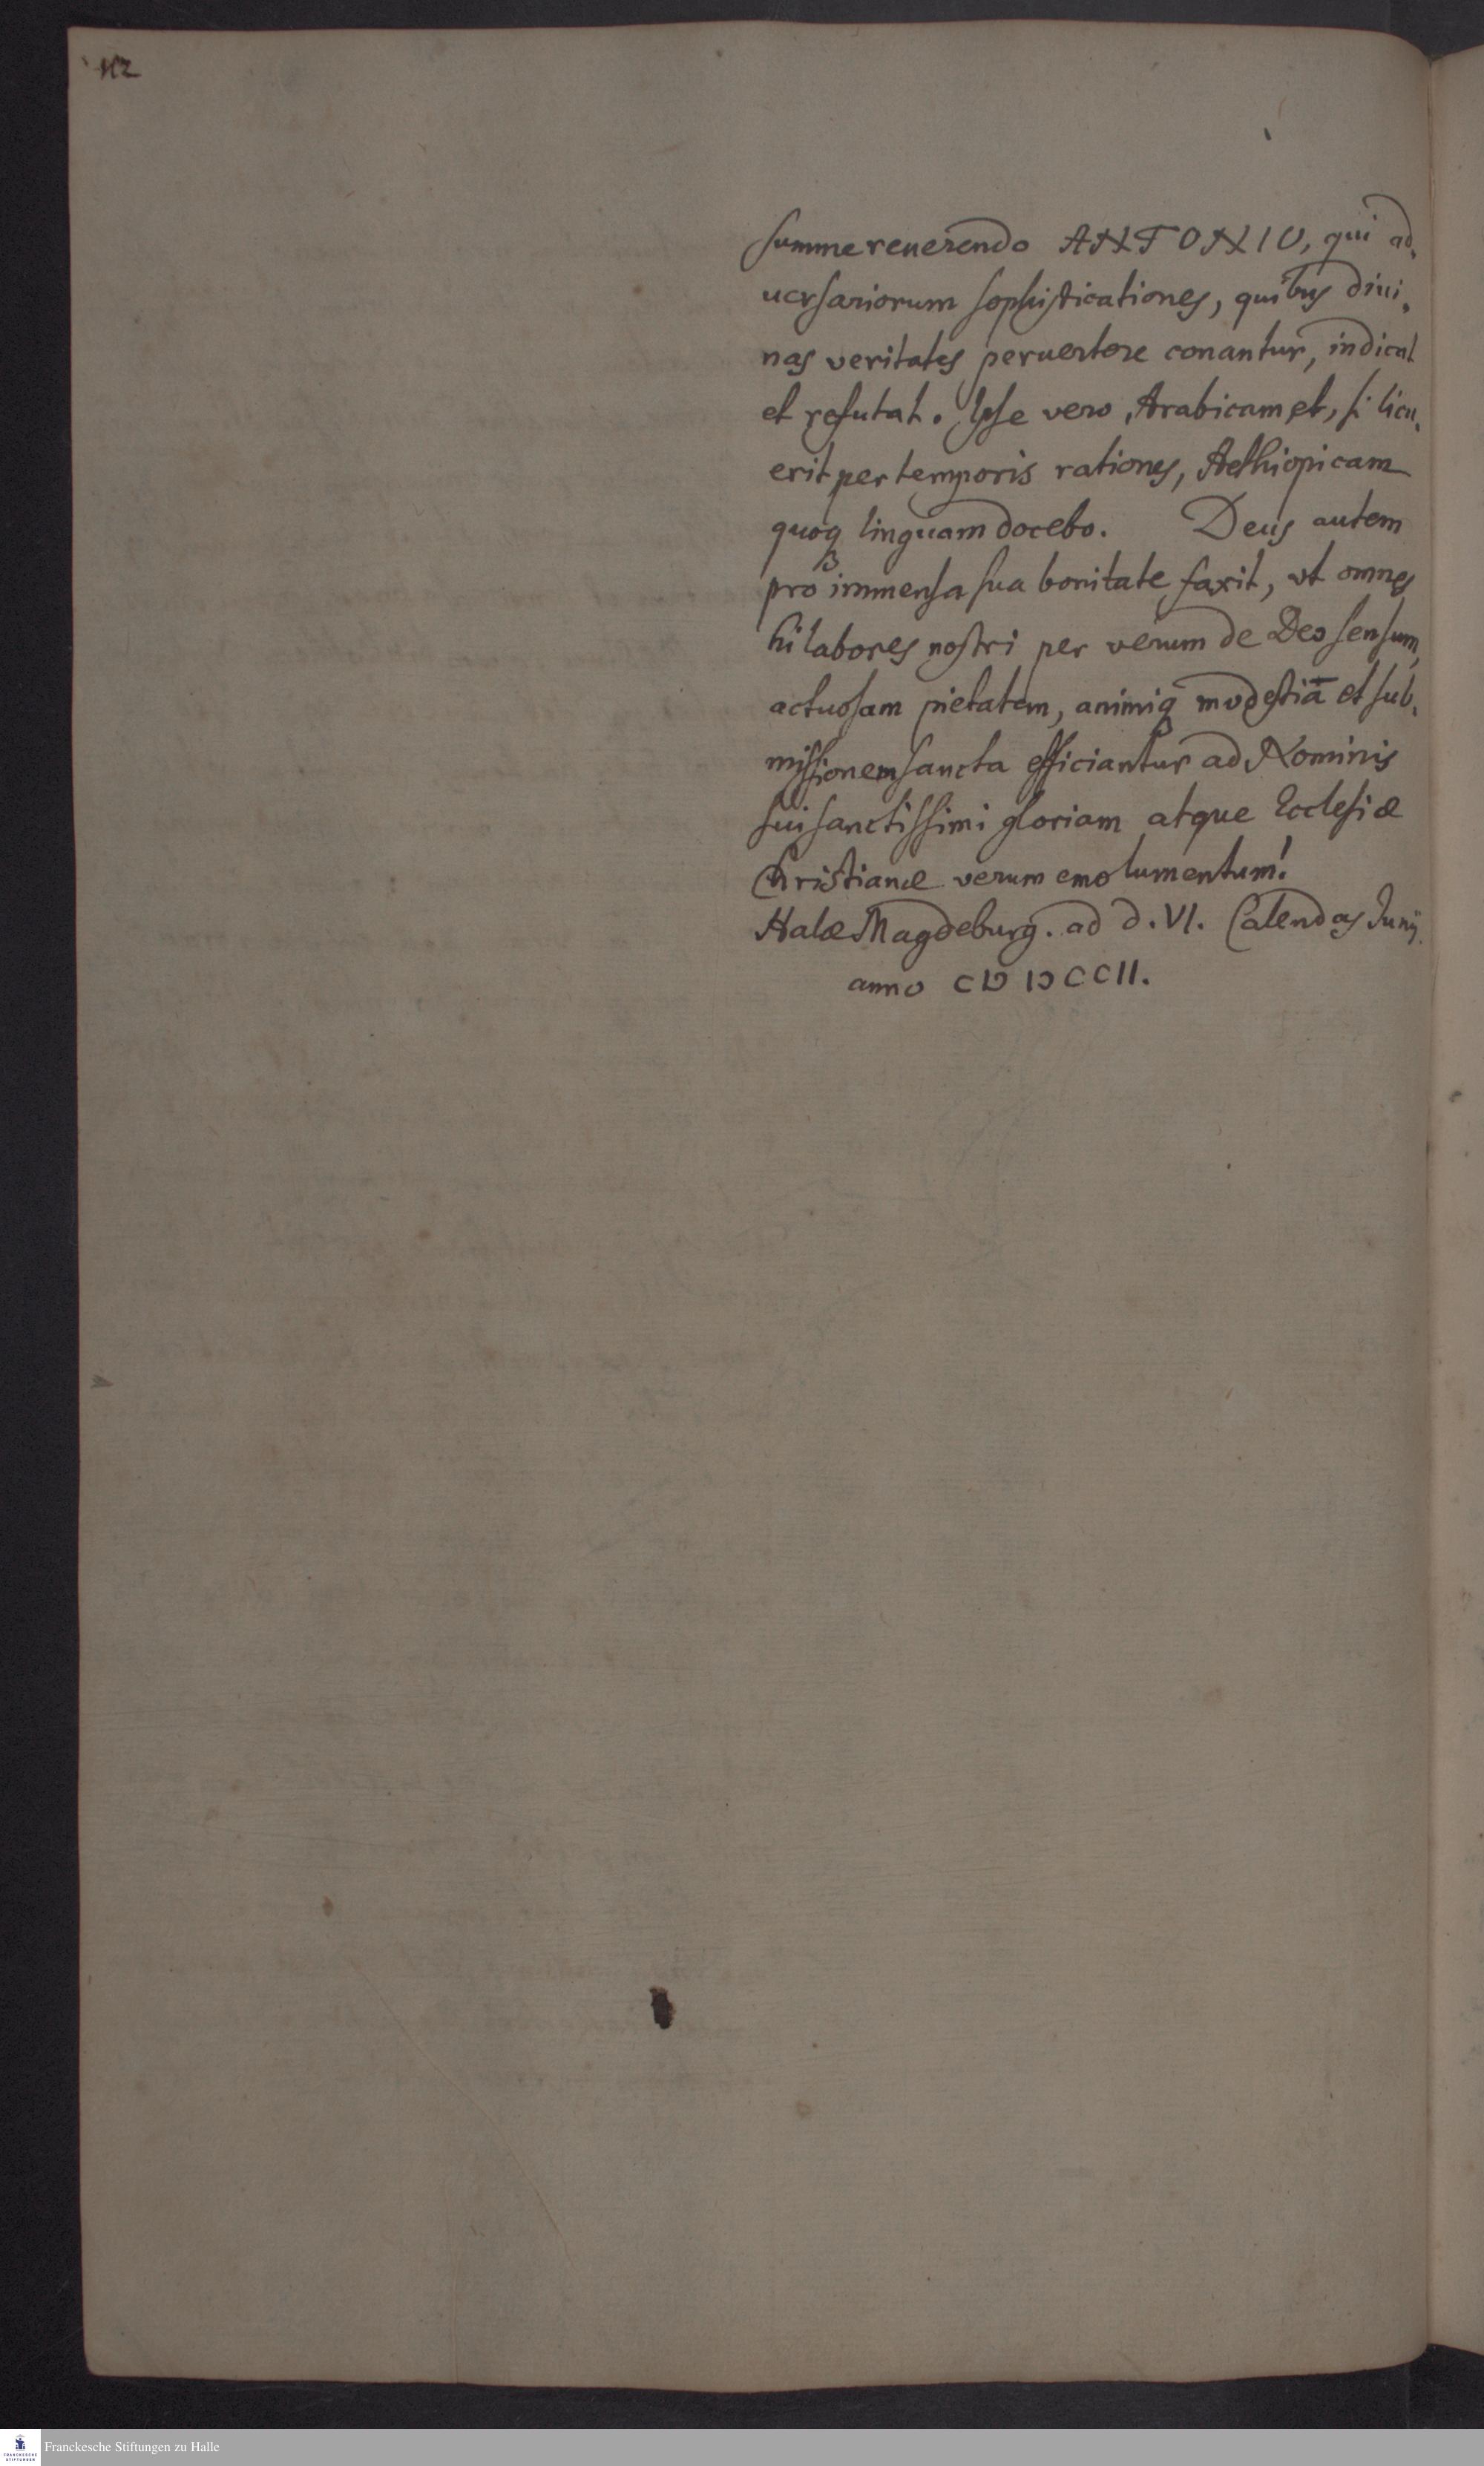 112
summe reuerendo ANTONIO, qui ad-
uersariorum sophisticationes, quibus diui-
nas veritates peruertere conantur, indicat
et refutat. Ipse vero, Arabicam, et, si licu-
erit per temporis rationes, Aethiopicam
quoq linguam docebo. Deus autem
pro immensa sua bonitate faxit, vt omnes
hi labores nostri per verum de Deo sensum,
actuosam pietatem, animiq modestiā et sub-
missionem sancta efficiantur ad Nominis
sui sanctissimi gloriam atque Ecclesiæ
Christianæ verum emolumentum!
Halæ Magdeburg. ad d. VI. Calendas Junij.
anno CIↃ IↃCCII.
FRANCKESCHE STIFTUNGEN
Franckesche Stiftungen zu Halle